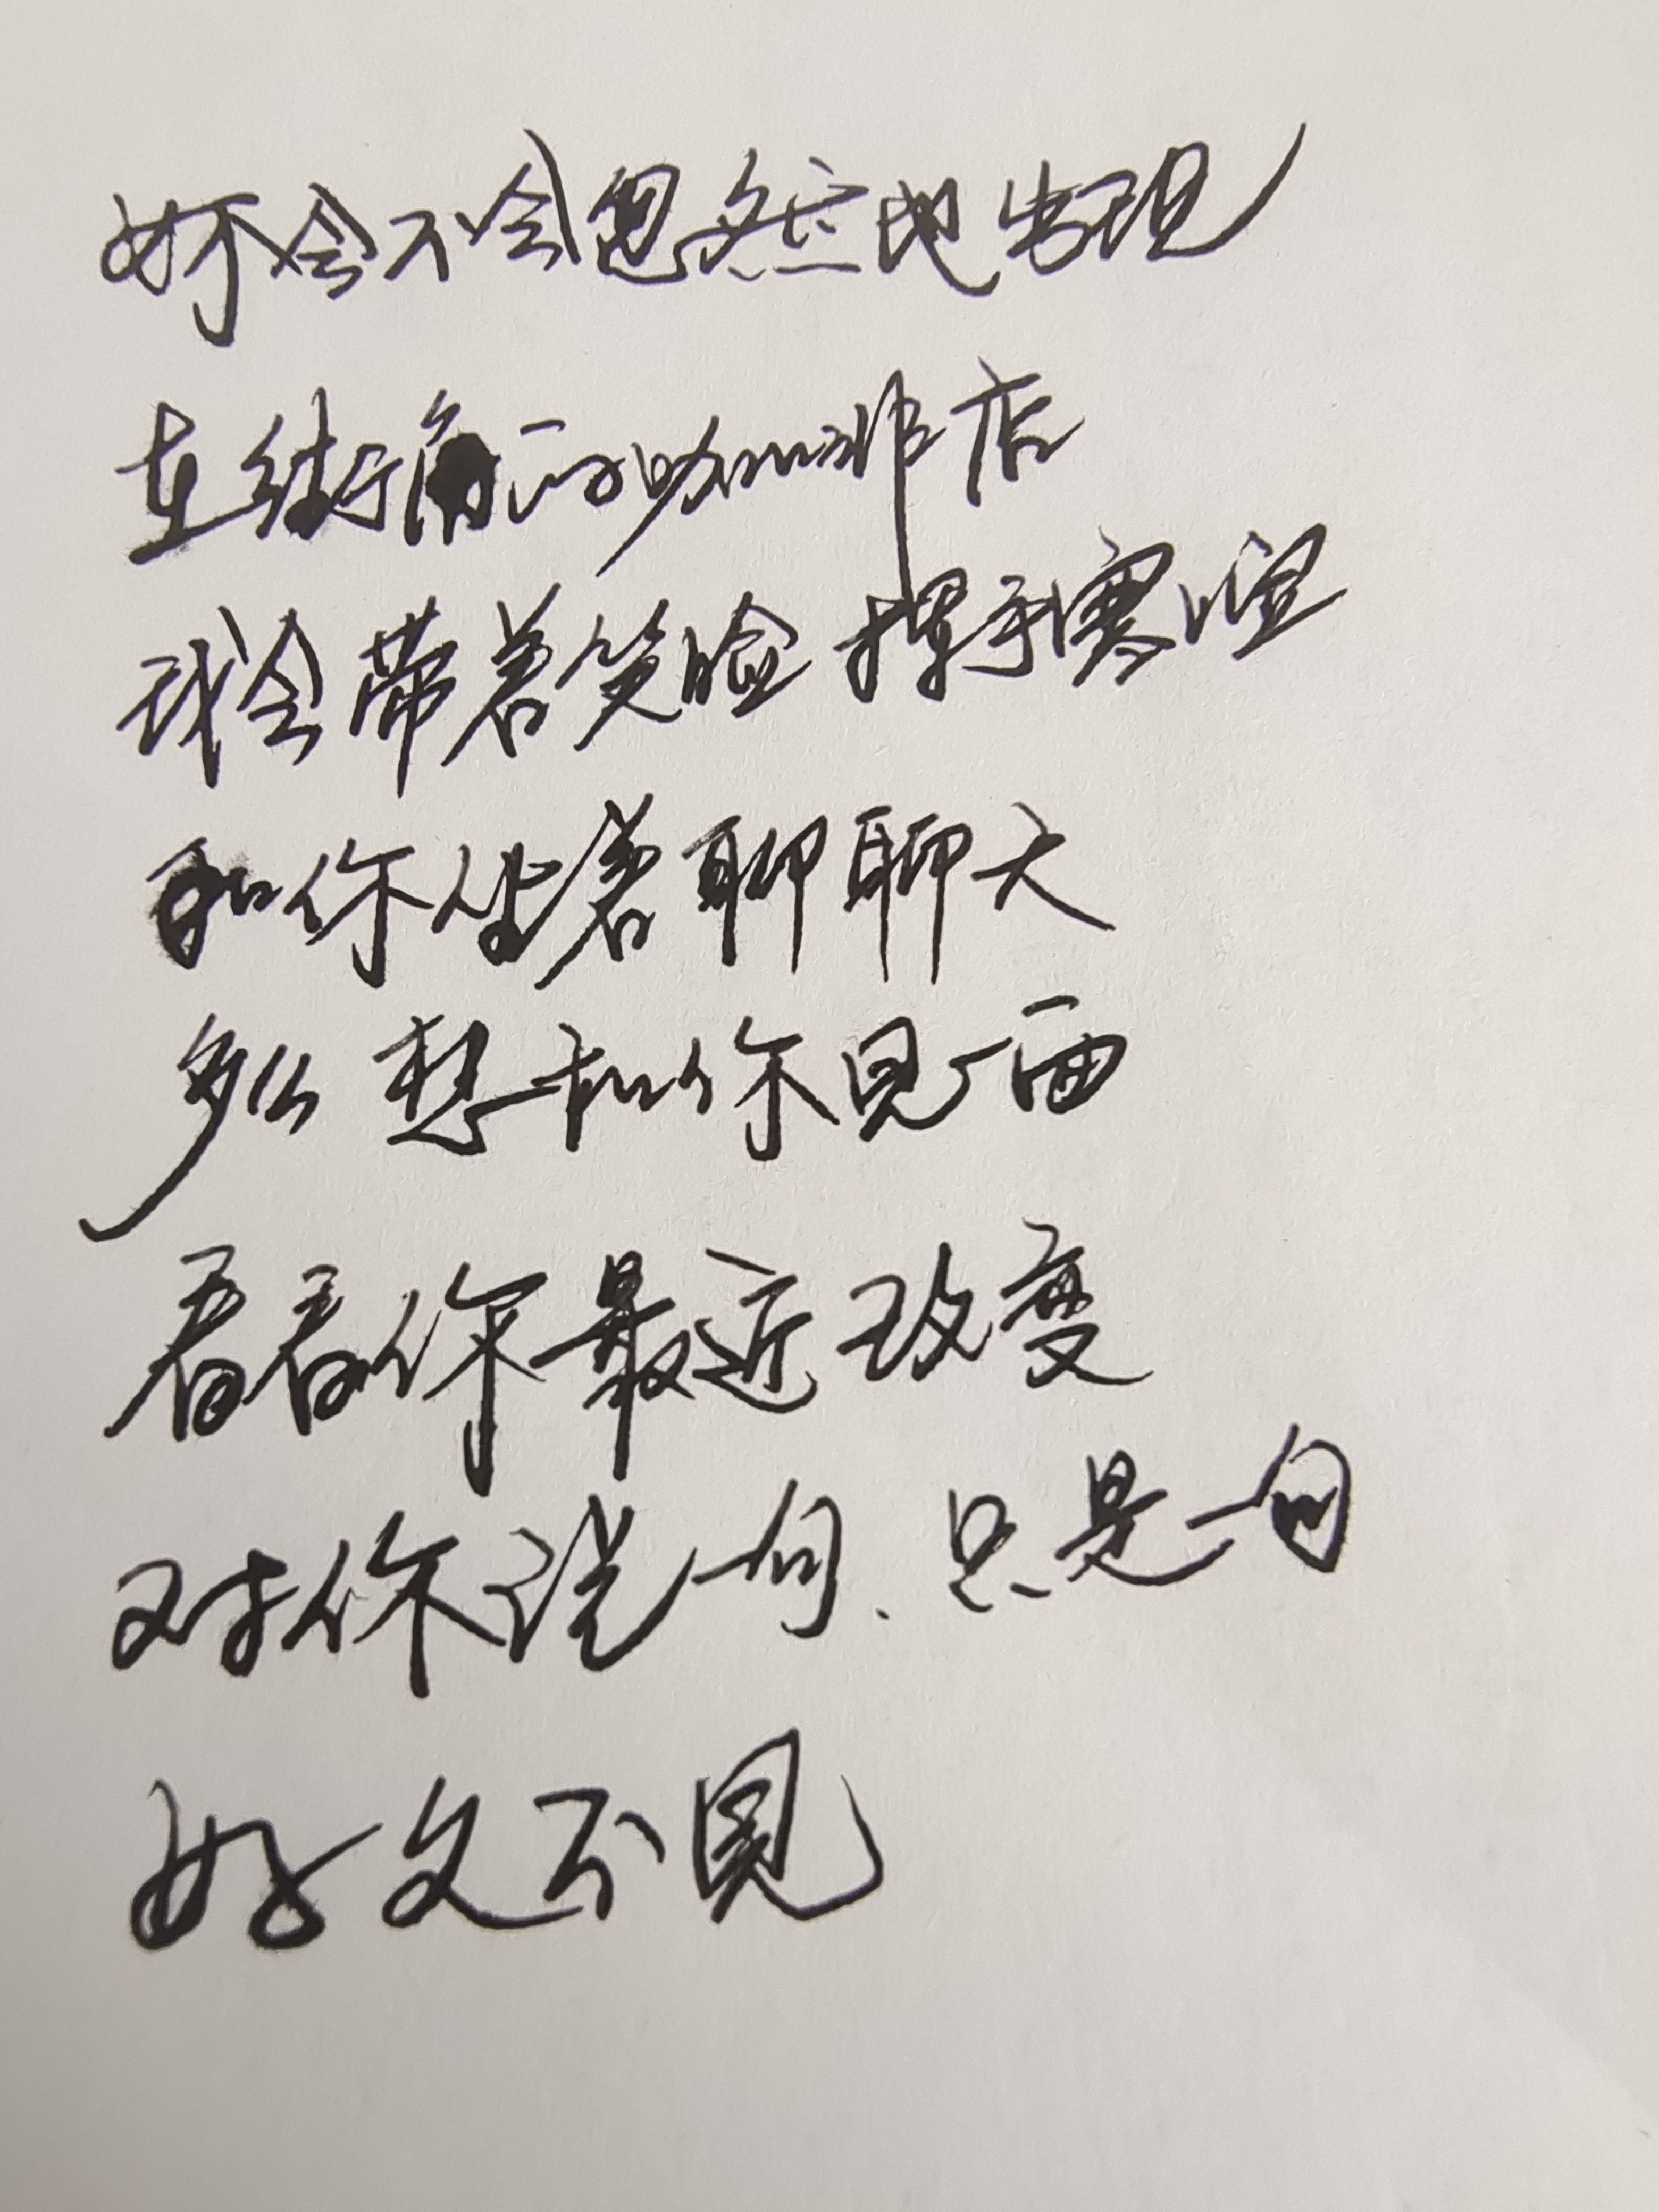 你会不会忽然地出现
在街角的咖啡店
我会带着笑脸 挥手寒暄
和你坐着聊聊天
多么想和你见一面
看看你最近改变
对你说一句.只是一句
好久不见